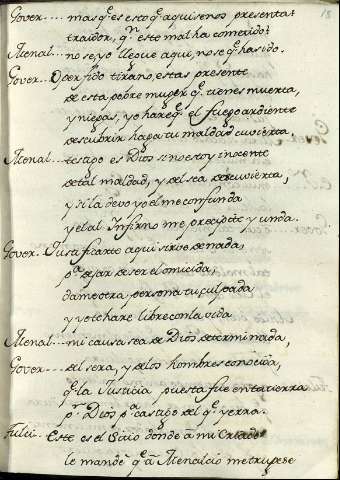 15
Gover---- mas q̃ es esto q̃ aqui se nos presenta?
traidor, qn este mal ha comerido?
Menal--- no se, yo lleque aqui, no se q̃ ha sido.
Gover--- O perfido tirano, estas presente
de esta pobre muger q̃ tienes muerta,
y niegas, yo hare q̃ el fuego ardiente
descubrir haga tu maldad cuvierta
Menal--- testigo es Dios si no estoy inocente
de tal maldad, y del sea descuvierta,
y si la devo yo el me confunda
y el al Infierno me precipite y unda.
Gover. Justificarte aqui sirve de nada,
pa dejar de ser el omicida,
dame otra persona tu culpada
y yo te hare libre con la vida
Menal--- mi causa sea de Dios determinada,
Gover--- del sera, y de los hombres conocida,
q̃ la Justicia puesta fue en la tierra
pr Dios pa castigo del q̃ yerra.
Fulci-- Este es el Sitio donde à mi Criado
le mandè q̃ à Menalcio me trugese